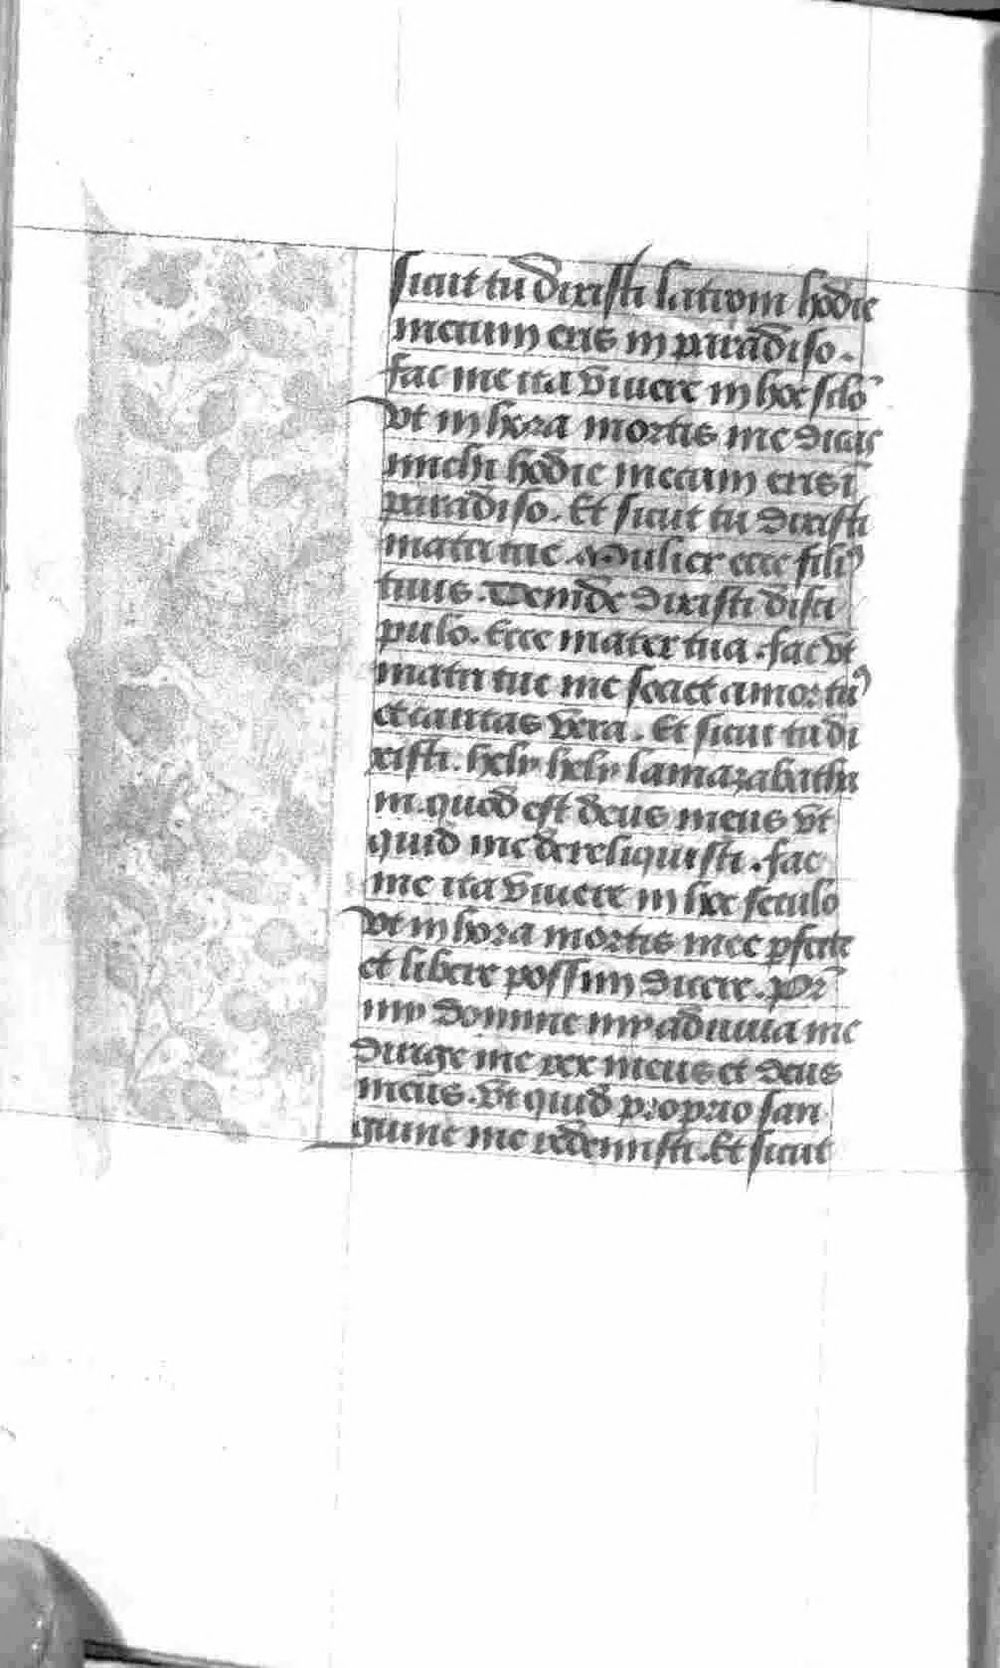 sicut tu dixisti latroni hodie
mecum eris in paradiso.
fac me ita viuere in hoc sclo
vt in hora mortis me dicas
michi hodie mecum eris ī
paradiso. Et sicut tu dixisti
matri tue Mulier ecce filiꝰ
tuus. Deinde dixisti disci
pulo. Ecce mater tua. fac vt
matri tue me societ amor tuꝰ
et caritas vera. Et sicut tu di
xisti. hely hely lamazabatha
ni. quod est deus meus vt
quid me dereliquisti. fac
me ita viuere in hoc seculo
vt in hora mortis mee pfcte
et libere possim dicere. Pr̄
mi domine mi adiuua me
Dirige me rex meus et deus
meus. Vt quid proprio san
guine me redemisti. Et sicut